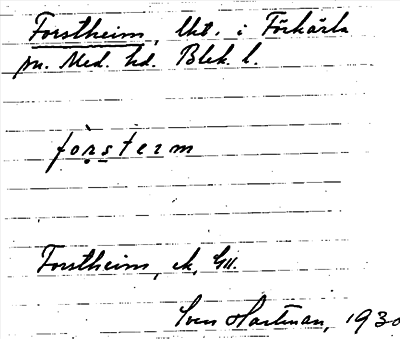 Forstheim, lht. i Förkärla
sn. Med. hd. Blek. l.
fo̱ṟs̱teım
Forstheim, ek. GU.
Sven Hartman, 1930